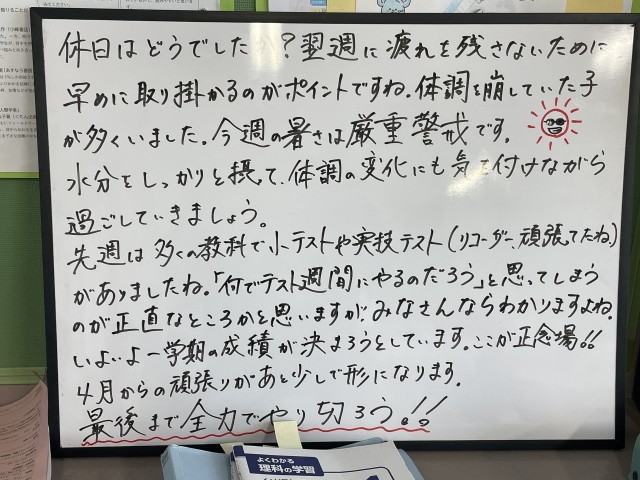 休日はどうでしたか?翌週に疲れを残さないために
早めに取り掛かるのがポイントですね。体調を崩していた子
が多くいました。今週の暑さは厳重警戒です。
水分をしっかりと摂って、体調の変化にも気を付けながら
過ごしていきましょう。
先週は多くの教科で小テストや実技テスト(リコーダー、頑張ってたね。)
がありましたね。「何でテスト週間にやるのだろう」と思ってしまう
のが正直なところかと思いますが、みなさんならわかりますよね。
いよいよ一学期の成績が決まろうとしています。ここが正念場!!
4月からの頑張りがあと少しで形になります。
最後まで全力でやり切ろう!!
よくわかる
理科の学習